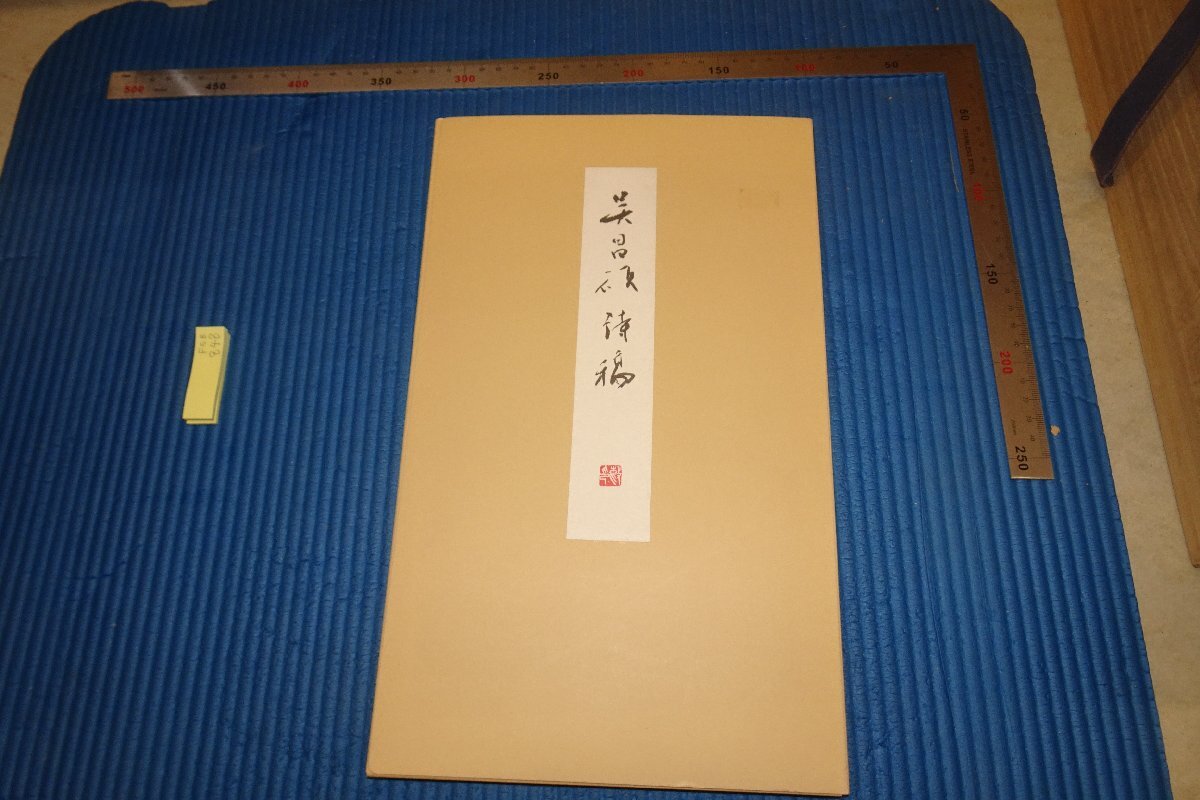 500 450 400 350 300 250 200 150 100 50
50
100
150
200
250
吴昌硕诗稿
848